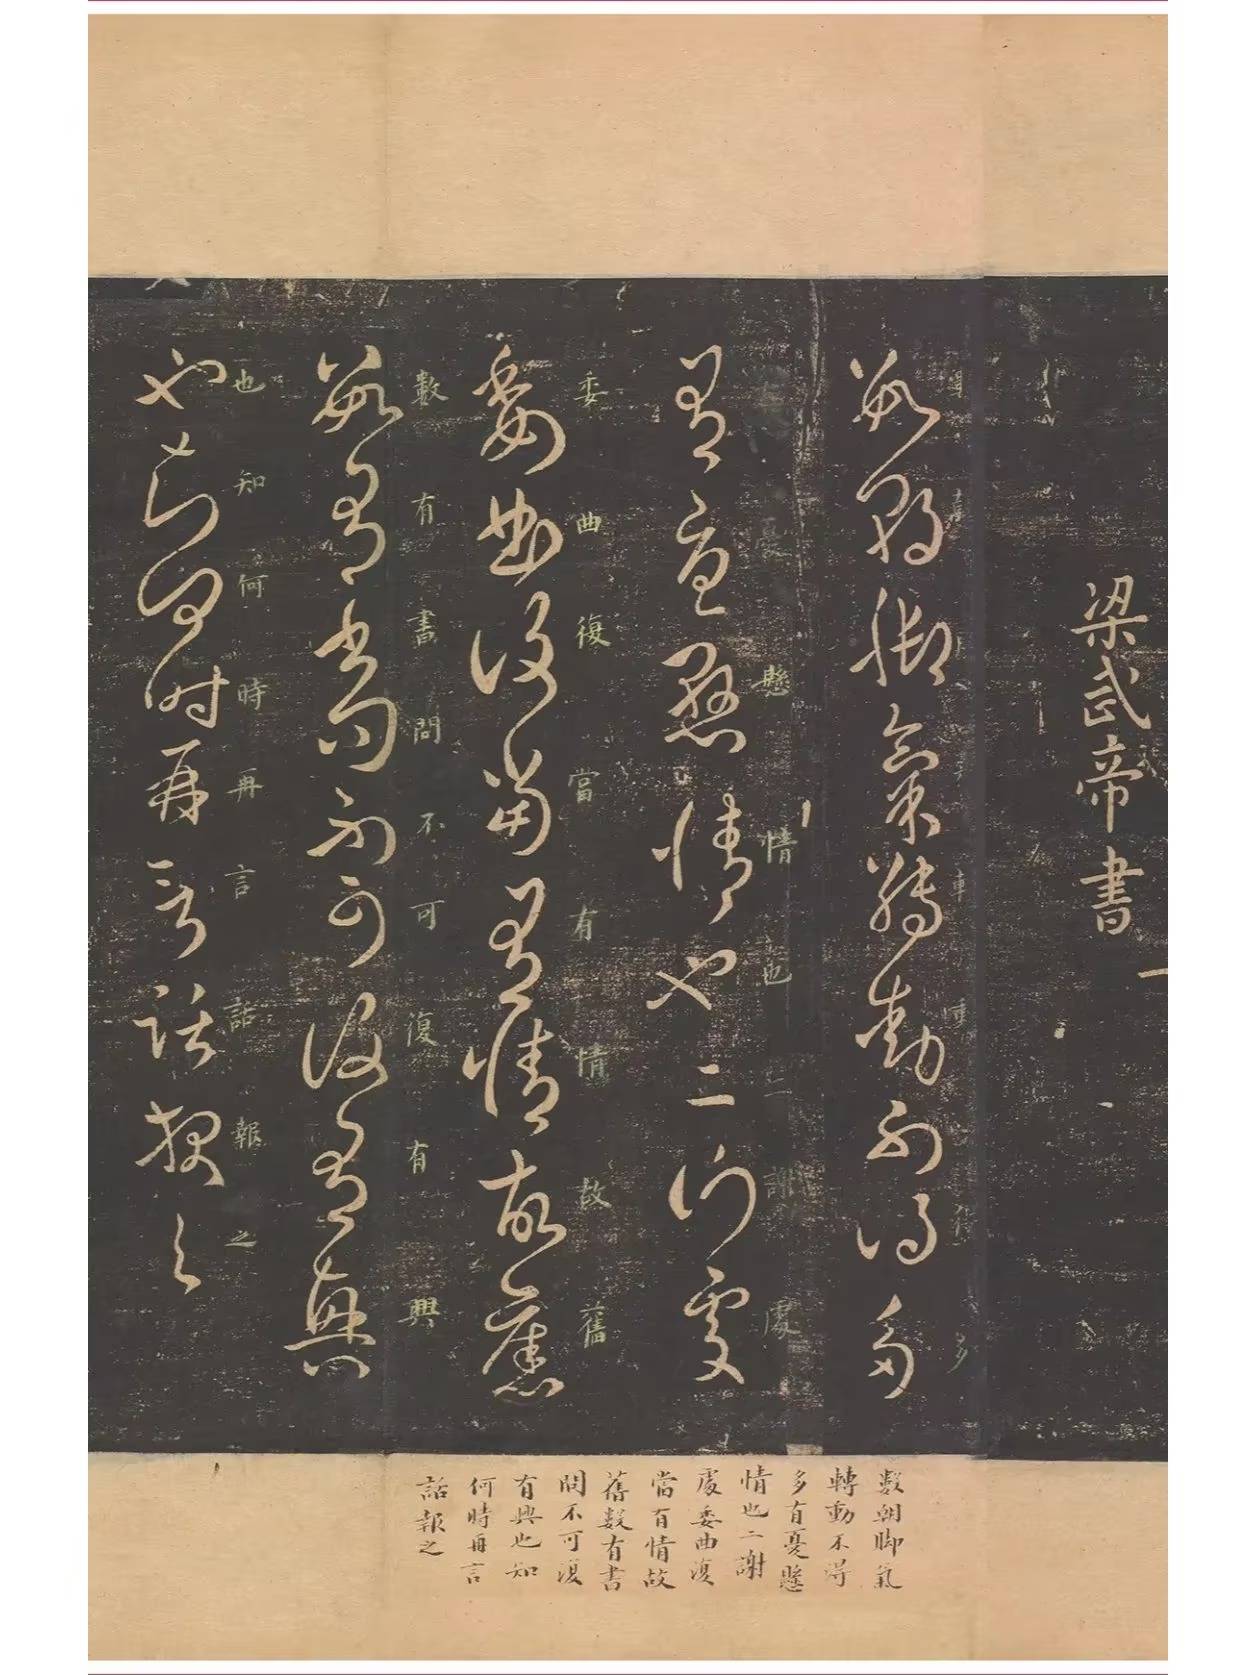 梁武帝書
數朝脚氣轉動不得多
有憂懸情也二謝處
懸情也二謝處
委曲復當有情故舊
委曲復當有情故舊
數有書問不可復有興
數有書問不可復有興
也知何時再言話報之
也知何時再言話報之
數朝脚氣
轉動不得
多有憂懸
情也二謝
處委曲復
當有情故
舊數有書
問不可復
有興也知
何時再言
話報之